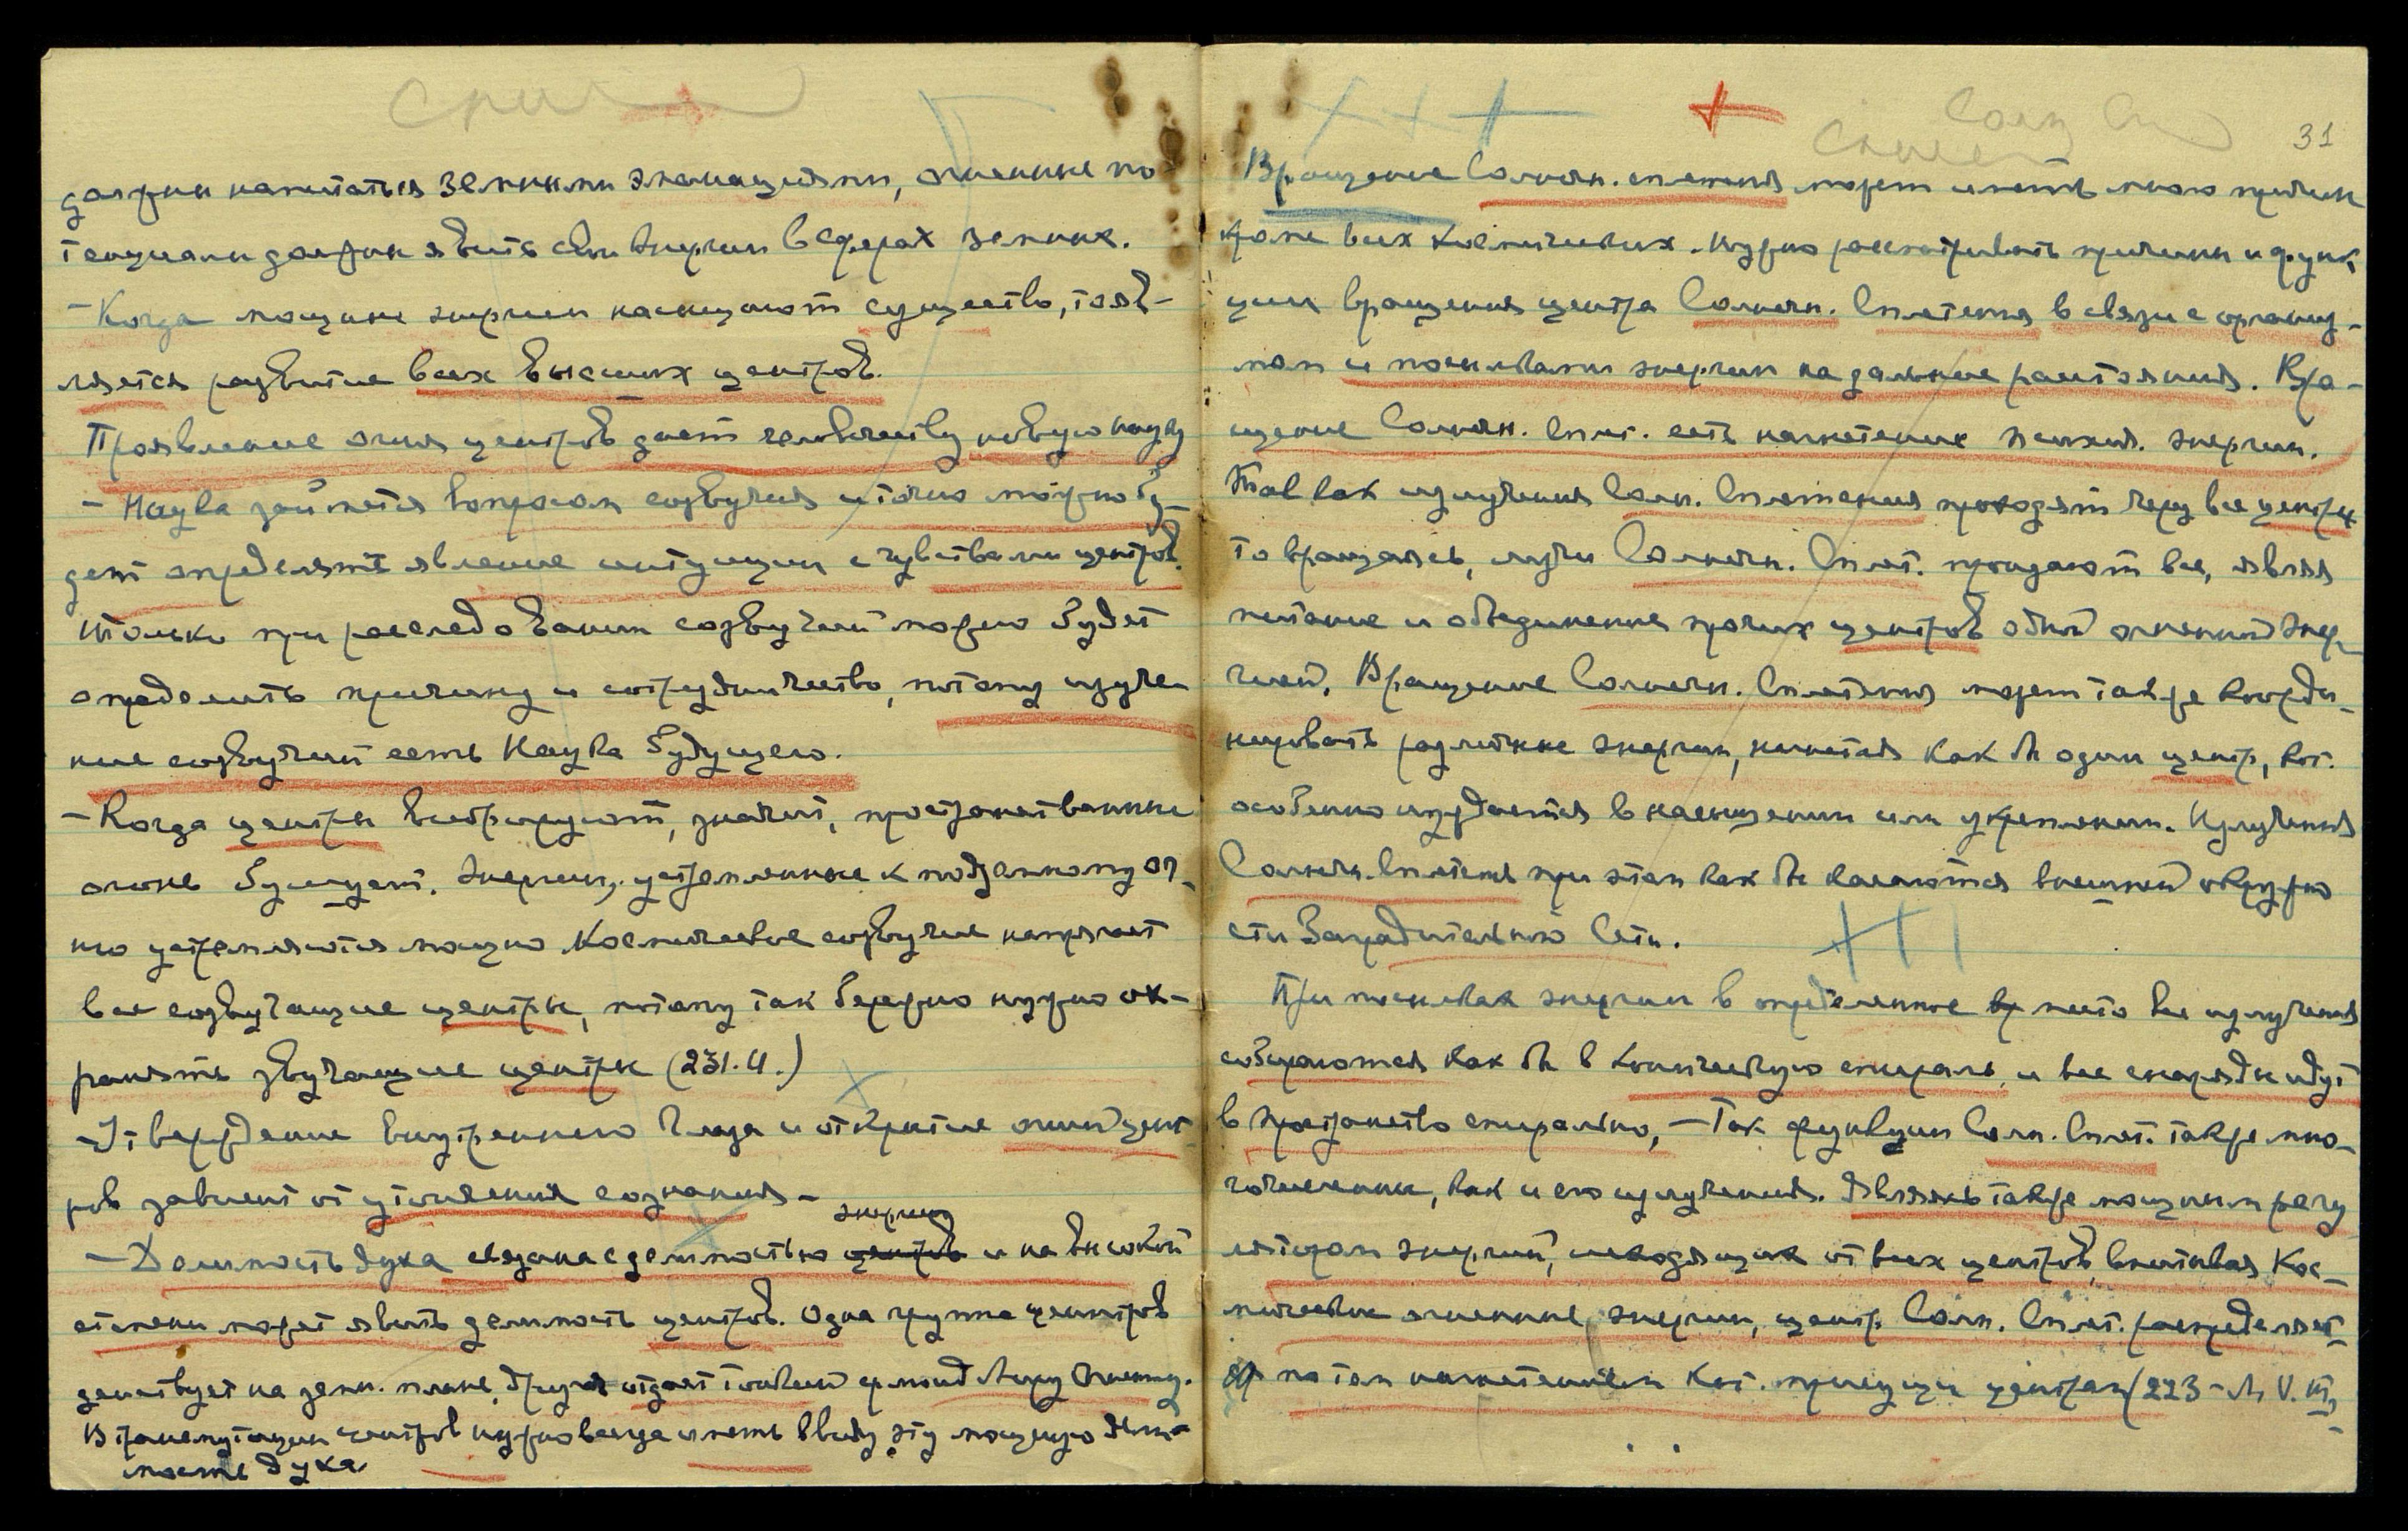 должны напитаться земными эманациями, огненные по-
тенциалы должны явить свои энергии в сферах земных.
– Когда мощные энергии насыщают существо, то яв-
ляется развитие всех высших центров.
Проявление огня центров дает человечеству новую науку
– Наука займется вопросом созвучия и точно можно бу-
дет определять явление интуиции с чувствами центров.
Только при расследовании созвучий можно будет
определить причину и сотрудничество, потому изуче-
ние созвучий есть Наука Будущего.
– Когда центры вибрируют, значит, пространственный
огонь бушует. Энергии, устремленные к подземному ог-
ню устремляются мощно. Космическое созвучие напрягает
все созвучащие центры, потому так бережно нужно ох-
ранять звучащие центры (231. И.)
– Утверждение внутреннего Глаза и открытие огней цент-
ров зависит от утончения сознания –
энергии
– Делимость духа связана с делимостью центров и на высокой
степени может явить делимость центров. Одна группа центров
действует на земн. плане, другая отдает тонкий флюид Миру Огненному.
В трансмутации центров нужно всегда иметь в виду эту мощную дели-
мость духа
31
Вращение Солнечн. сплетения может иметь много причин
кроме всех космических. Нужно рассматривать причины и функ-
ции вращения центра Солнечн. Сплетения в связи с организ-
мом и посылками энергии на дальние расстояния. Вра-
щение Солнечн. Сплет. есть нагнетение психич. энергии.
Так как излучения Солн. Сплетения проходят через все центры
то вращаясь, лучи Солнечн. Сплет. проидают все, являя
питание и объединение прочих центров одной огненной энер-
гией. Вращение Солнечн. Сплетения может также коорди-
нировать различные энергии, нагнетая как бы один центр, кот.
особенно нуждается в насыщении или укреплении. Излучения
Солнечн. Сплетения при этом как бы касаются внешней окружно
сти Заградительной Сети.
При посылках энергии в определенное место все излучения
собираются как бы в коническую спираль, и все снаряды идут
в пространство спирально, – Так функции Солн. Сплет. также мно-
гочисленны, как и его излучения. Являясь также мощным регу
лятором энергий, исходящих от всех центров, впитывая Кос-
мические огненные энергии, центр Солн. Сплет. распределяет
по том нагнетениям кот. присущи центрам (223 – М.